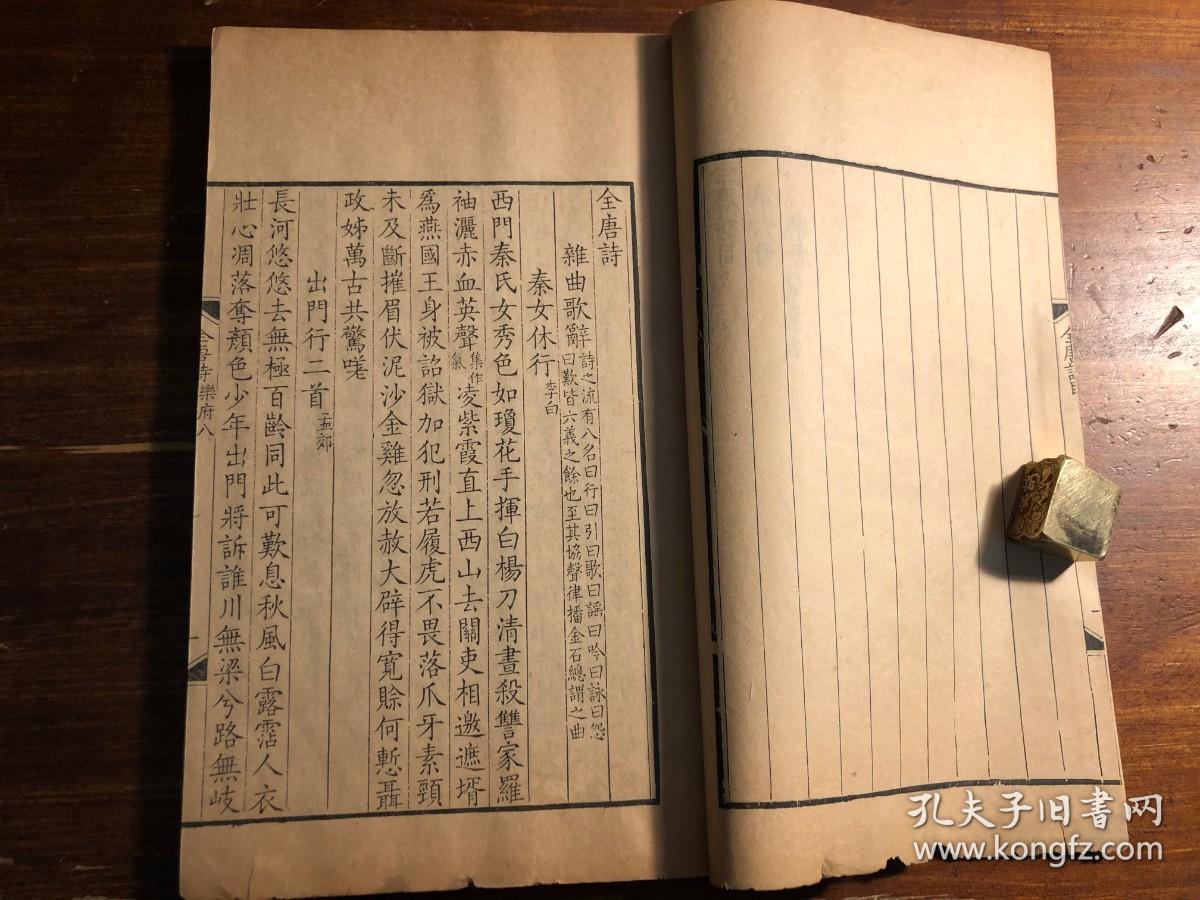 全唐詩
一
全唐詩
雜曲歌辭 詩之流有八名曰行曰引曰歌曰謡曰吟曰詠曰怨
曰歎皆六義之餘也至其協聲律播金石總謂之曲
秦女休行 李白
西門秦氏女秀色如瓊花手揮白楊刀清晝殺讐家羅
袖灑赤血英聲集作氣凌紫霞直上西山去關吏相邀遮壻
爲燕國王身被詔獄加犯刑若履虎不畏落爪牙素頸
未及斷摧眉伏泥沙金雞忽放赦大辟得寬賒何慙聶
政姊萬古共驚嗟
出門行二首 孟郊
長河悠悠去無極百齡同此可歎息秋風白露霑人衣
壯心凋落奪顏色少年出門將訴誰川無梁兮路無岐
全唐詩樂府八
一
孔夫子旧书网
www.kongfz.com